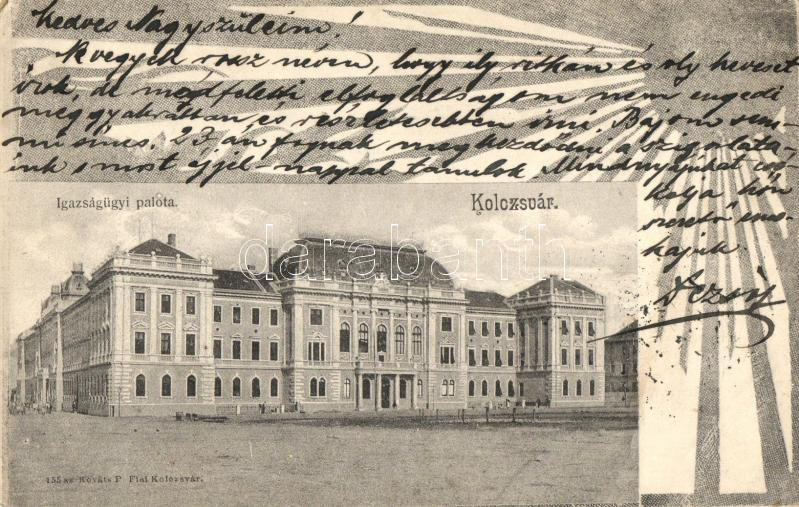 kedves Nagyszüleim!
Ne vegyék rossz néven, hogy ily ritkán és oly keveset
írok, de megfeletti elfoglaltságom nem engedi
meg gyakrabban és részletesebben írni. Bajom sem-
mi sincs. 23.án fognak megkezdődni a szigorlata-
ink s most éjjel-nappal tanulok. Mindnyájukat
kolja hőn
szerető uno-
kájuk
Dezső
Igazságügyi palota.
Kolozsvár.
darabanth
155 sz Kováts P Fiai Kolozsvár.